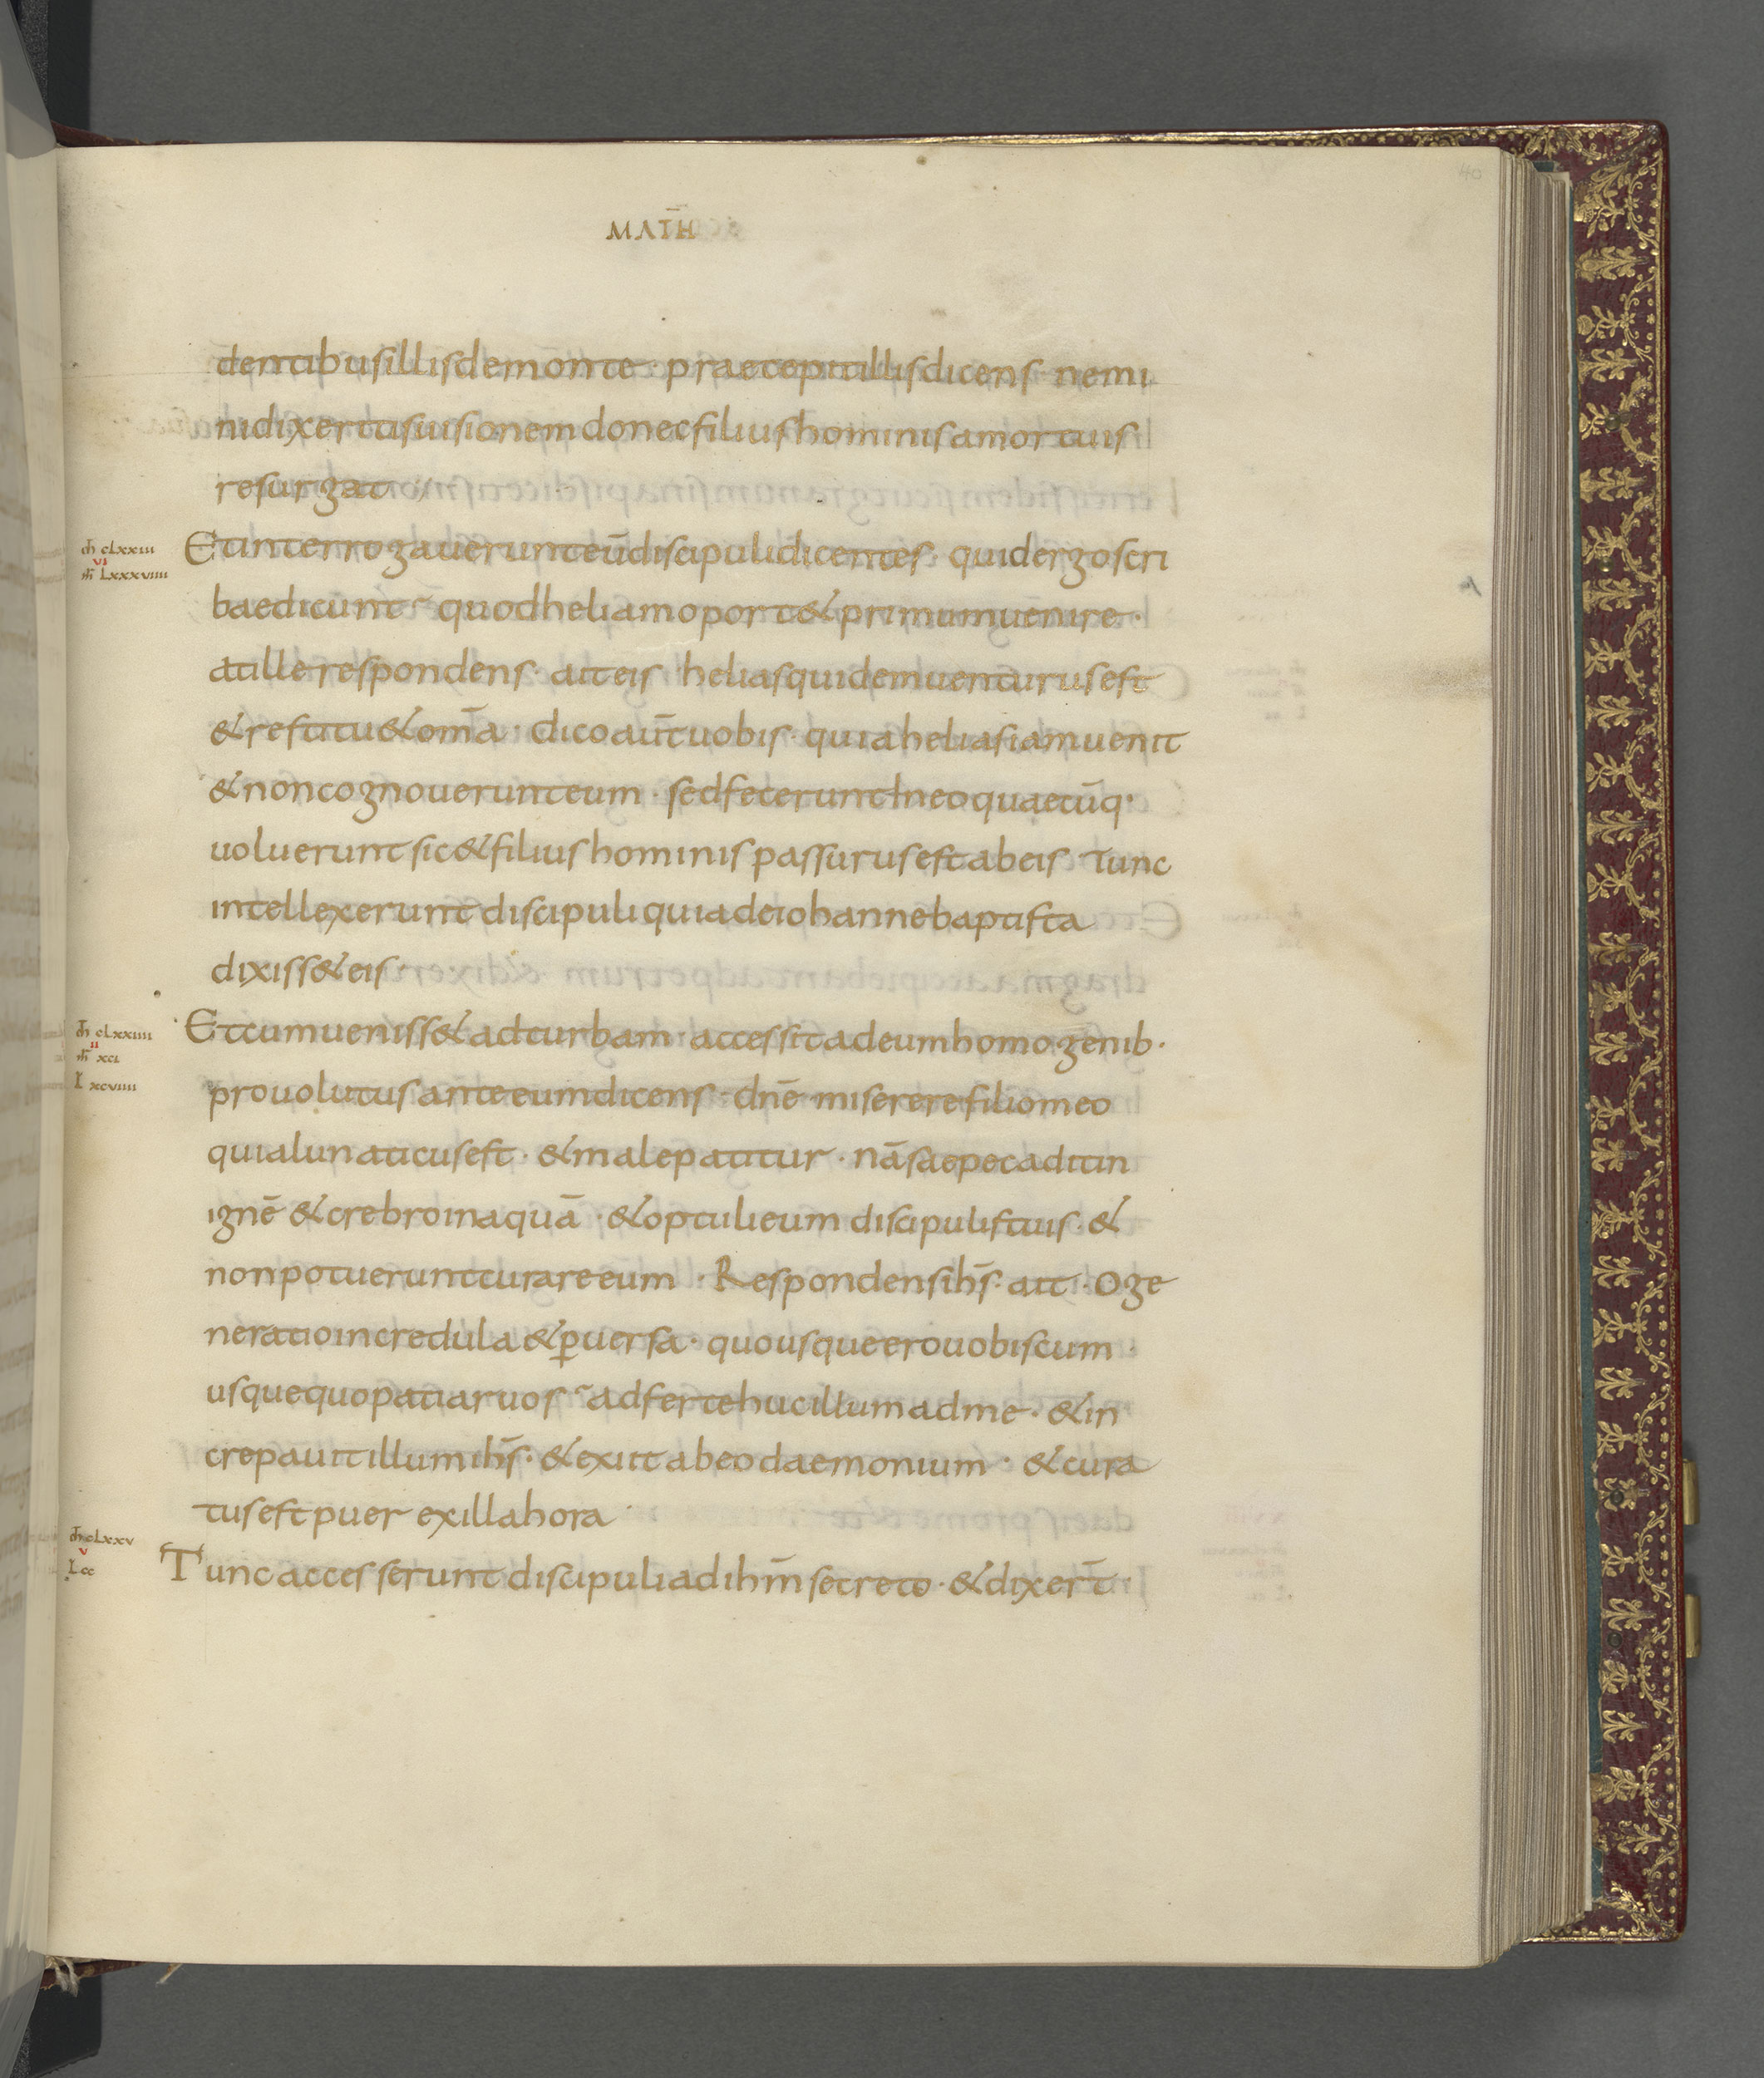 40
MATH̄
dentibus illis de monte · praecepit illis dicens · nemi
ni dixeritis uisionem donec filius hominis a mortuis
resurgat ·
m̄ cLxxiii
vi
m̄ Lxxxviiii
Et interrogauerunt eū discipuli dicentes · quid ergo scri
bae dicunt quod heliam oport& primum uenire ·
at ille respondens · ait eis helias quidem uenturus est
& restitu& om̄a · dico aut̄ uobis · quia helias iam uenit
& non cognouerunt eum · sed fecerunt In eo quaecūq·
uoluerunt sic & filius hominis passurus est ab eis · Tunc
intellexerunt discipuli quia de iohanne baptista
dixiss& eis ·
m̄ cLxxiiii
ii
m̄ xci
L xcviiii
Et cum ueniss& ad turbam · accessit ad eum homo genib·
prouolutus ante eum dicens · dn̄e miserere filio meo
quia lunaticus est · & male patitur · nā saepe cadit in
ignē & crebro in aquā · & optuli eum discipulis tuis · &
non potuerunt curare eum · Respondens ih̄s · ait · O ge
neratio incredula & p̱uersa · quousque ero uobiscum
usquequo patiar uos adferte huc illum ad me · & in
crepauit illum ih̄s · & exiit ab eo daemonium · & cura
tus est puer ex illa hora ·
m̄ cLxxv
v
L cc
Tunc accesserunt discipuli ad ihm̄ secreto · & dixer̄t ·